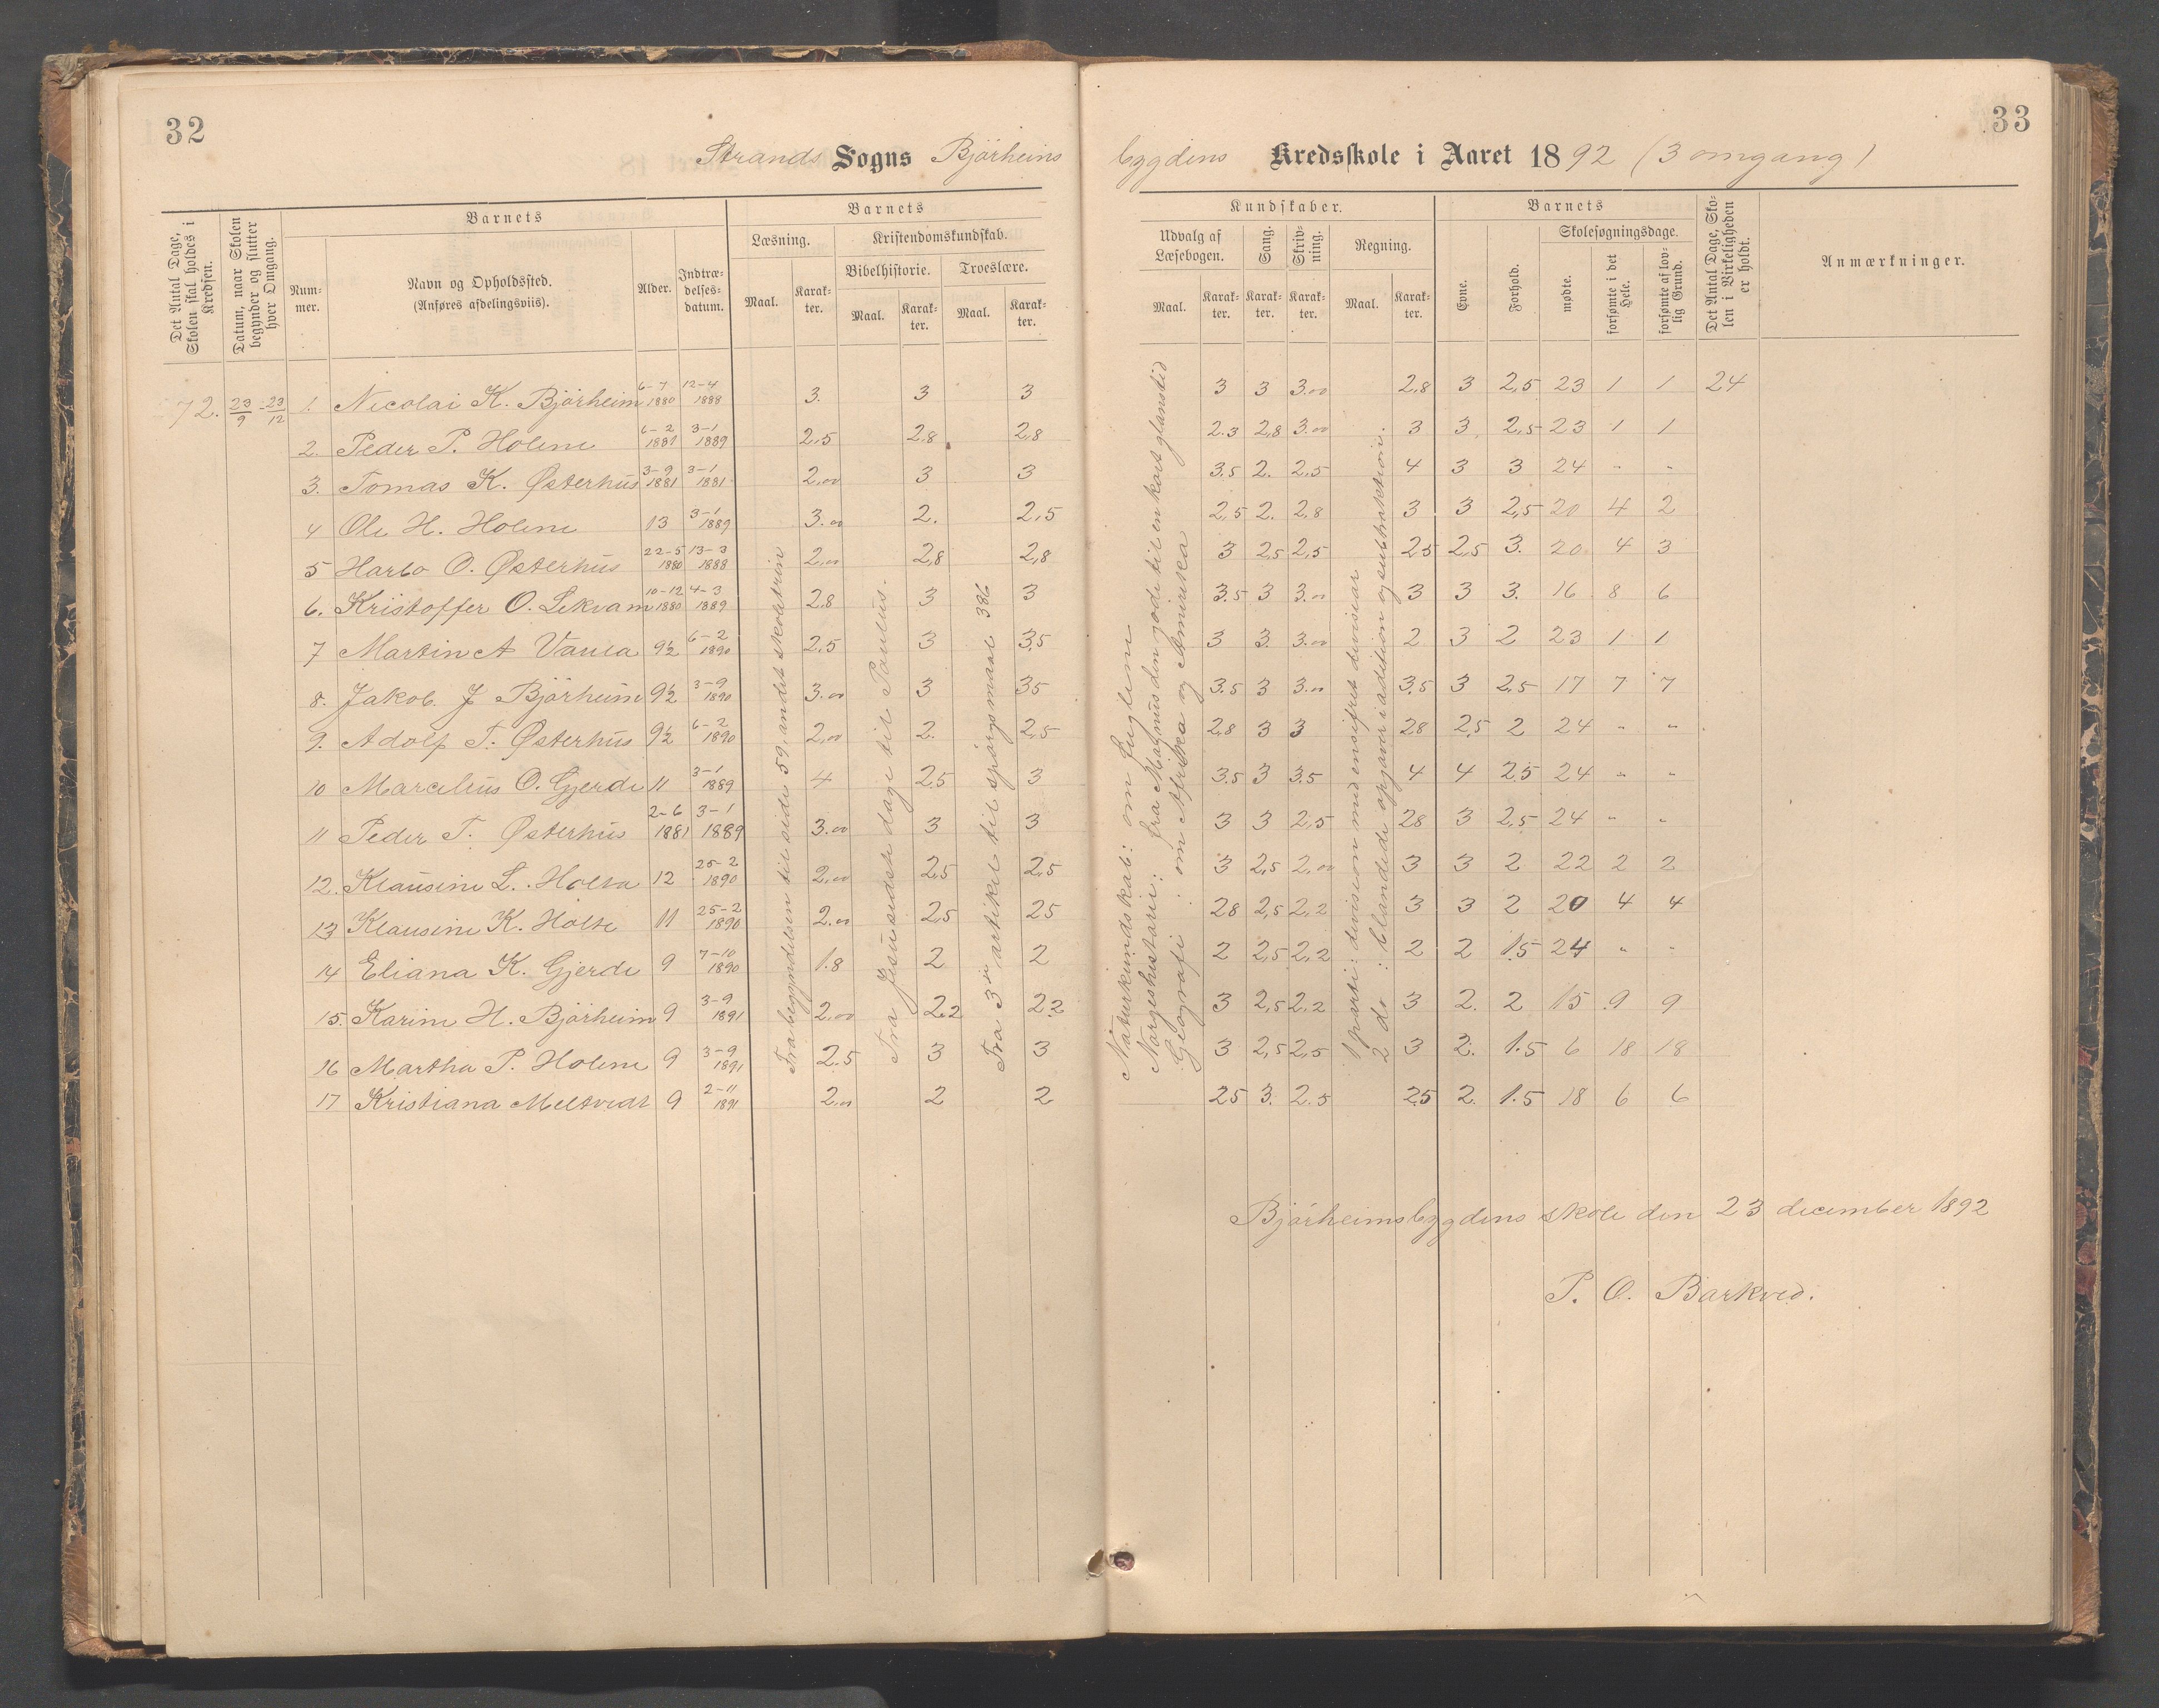 32
Strands Sogns Bjørheims
Det Antal Dage, Skolen skal holdes i Kredsen.
Datum, naar Skolen begynder og slutter hver Omgang.
Barnets
Nummer.
Navn og Opholdssted.
(Anføres afdelingsviis).
Alder.
Indtrædelsesdatum.
Barnets
Læsning.
Kristendomskundskab.
Bibelhistorie.
Troeslære.
Maal. Karakter. Maal. Karakter. Maal. Karakter.
72. 23/9 - 23/12
1. Nicolai K. Bjørheim 6-7 1880 12-4 1888 3. 3 3
2. Peder P. Holene 6-2 3-1 1889 2,5 2,8 2,8
3. Tomas K. Østerhus 3-9 1881 3-1 1881 2,00 3 3
4 Ole H. Holene 13 3-1 1889 3.00 2. 2,5
5 Harbo O. Østerhus 22-5 1880 13-3 1888 2,00 2,8 2,8
6. Kristoffer O. Lekvam 10-12 1880 4-3 1889 2.8 3 3
7 Martin A 9½ 6-2 1890 2,5 3 3.5
8. Jakob. J Bjørheim 9½ 3-9 1890 3.00 3 35
9. Adolf T. Østerhus 9½ 6-2 1890 2,00 2. 2,5
10 Marcelius O. Gjerde 11 3-1 1889 4 2.5 3
11 Peder T. Østerhus 2-6 1881 3-1 1889 3.00 3 3
12. Klausine L. 12 25-2 1890 2,00 2,5 2,5
13 Klausine K. Holte 11 25-2 1890 2.00 2,5 25
14 Eliana K. Gjerde 9 7-10 1890 1.8 2 2
15. Karine H. Bjørheim 9 3-9 1891 2,00 2.2 2.2
16 Martha P. Holene 9 3-9 1891 2.5 3 3
17 Kristiana Meltvedt 9 2-11 1891 2.00 2 2
Fra begyndelsen til side 59, andet skoletrin
Fra Jesu sidste dage til Paulus.
Fra 3die artikel til spørgsmaal 386
33
bygdens Kredsskole i Aaret 1892 (3 omgang)
Kundskaber.
Udvalg af Læsebogen.
Sang.
Skrivning.
Regning.
Maal. Karakter. Karakter. Karakter. Maal. Karakter.
Barnets
Evne.
Forhold.
Skolesøgningsdage.
mødte.
forsømte i det Hele.
forsømte af lovlig Grund.
Det Antal Dage, Skolen i Virkeligheden er holdt.
Anmærkninger.
3 3 3.00 2,8 3 2,5 23 1 1 24
2.3 2,8 3.00 3 3. 2,5 23 1 1
3.5 2. 2,5 4 3 3 24 - -
2,5 2. 2,8 3 3 2,5 20 4 2
3 2,5 2,5 25 2,5 3. 20 4 3
3.5 3 3.00 3 3 3. 16 8 6
3 3. 3.00 2 3 2 23 1 1
3.5 3 3.00 3,5 3 2,5 17 7 7
2,8 3 3 28 2,5 2 24 - -
3.5 3 3.5 4 4 2.5 24 - -
3 3 2,5 28 3 2,5 24 - -
3 2,5 2,00 3 3 2 22 2 2
28 2,5 2,2 3 3 2 20 4 4
2 2,5 2,2 2 2 1.5 24 - -
3 2,5 2,2 3 2. 2 15 9 9
3 2,5 2,5 3 2. 1.5 6 18 18
25 3. 2.5 2.5 2. 1.5 18 6 6
Naturkundskab: om Fuglene
Norgeshistorie: fra Magnus den gode til en kort glanstid
Geografi: om Afrika og Amerika
1 parti: division med ensifret divisior
2 do: blandede opgaver i addition og subtraktion.
Bjørheimsbygdens skole den 23 december 1892
P. O. Barkved.